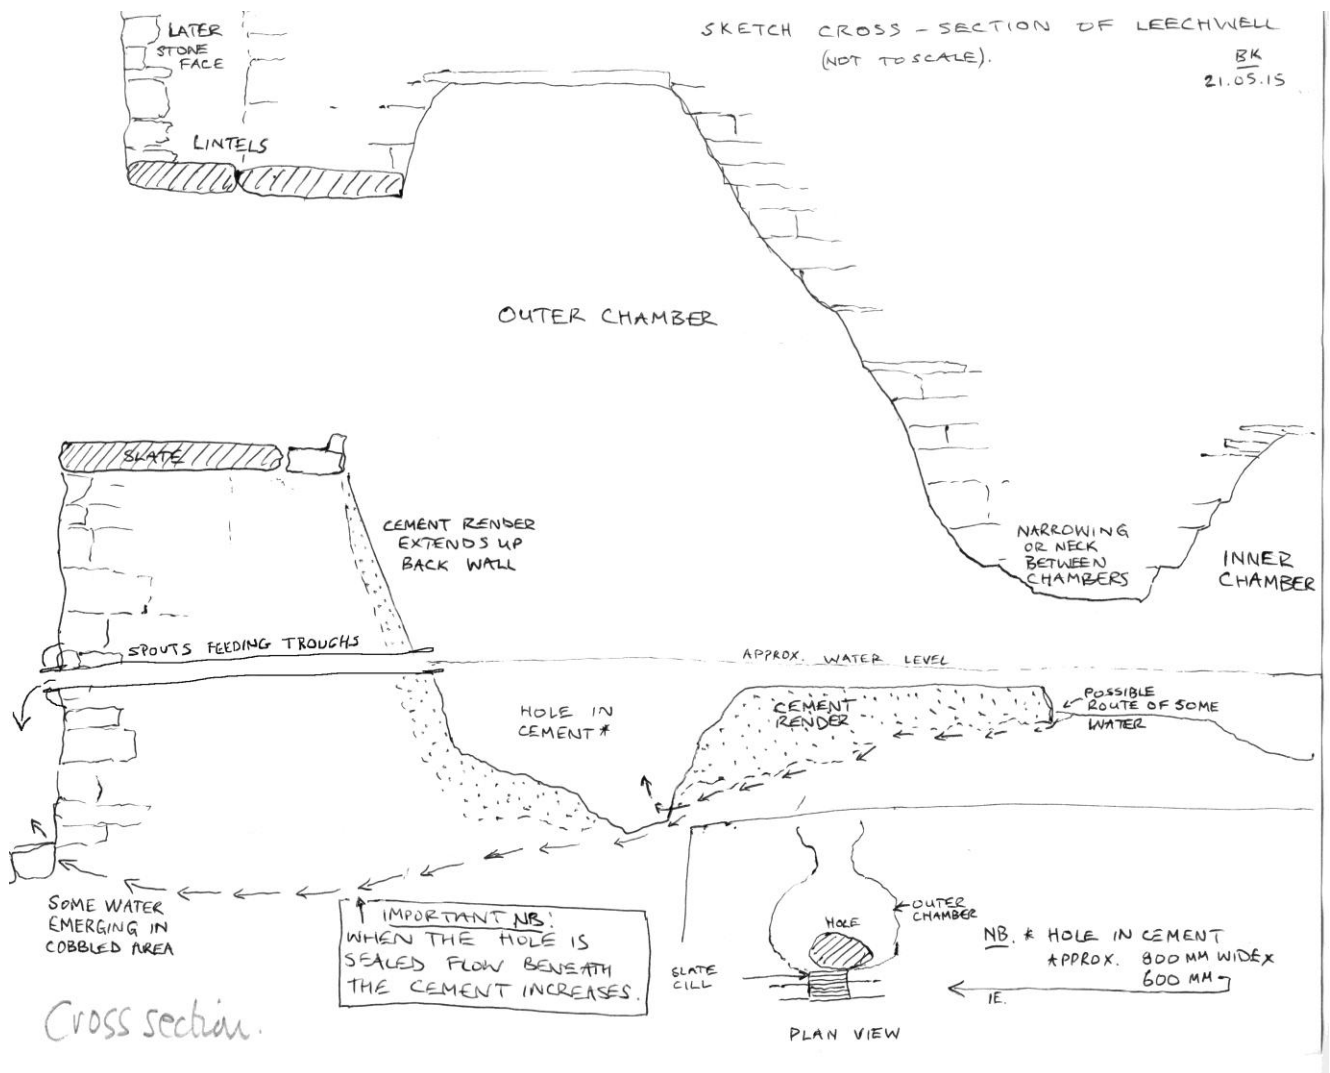 SKETCH CROSS-SECTION OF LEECHWELL
(NOT TO SCALE).
BK
21.05.15
LATER
STONE
FACE
LINTELS
OUTER CHAMBER
SLATE
CEMENT RENDER
EXTENDS UP
BACK WALL
NARROWING
OR NECK
BETWEEN
CHAMBERS
INNER
CHAMBER
SPOUTS FEEDING TROUGHS
APPROX. WATER LEVEL
HOLE IN
CEMENT*
CEMENT
RENDER
POSSIBLE
ROUTE OF SOME
WATER
SOME WATER
EMERGING IN
COBBLED AREA
IMPORTANT NB:
WHEN THE HOLE IS
SEALED FLOW BENEATH
THE CEMENT INCREASES.
SLATE
CILL
HOLE
OUTER
CHAMBER
PLAN VIEW
NB. * HOLE IN CEMENT
APPROX. 800 MM WIDE X
600 MM
IE.
Cross section.